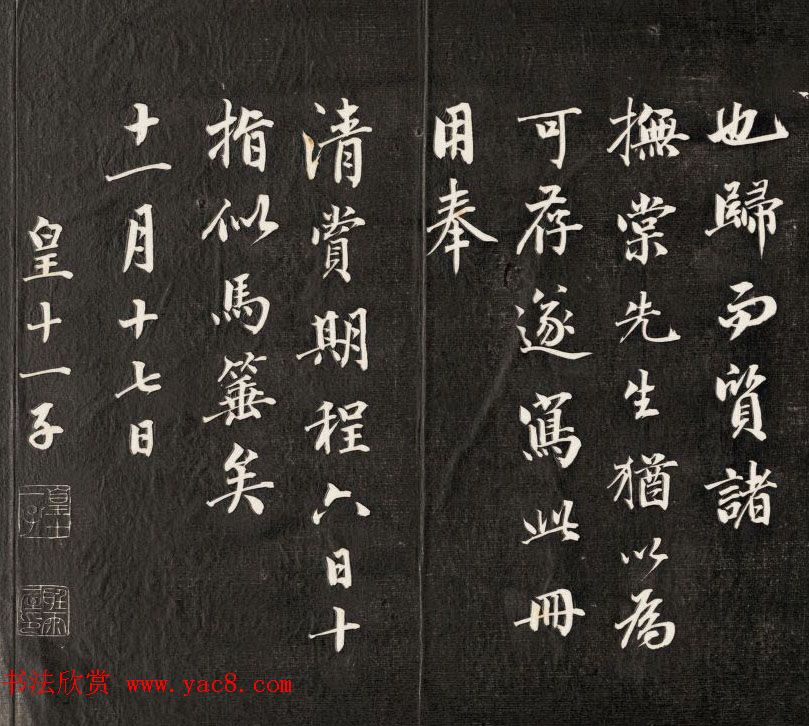 也歸而質諸
撫棠先生猶以為
可存遂寫此冊
用奉
清賞期程六日十
指似馬箠矣
十一月十七日
皇十一子
皇十一子
书法欣赏 www.yac8.com